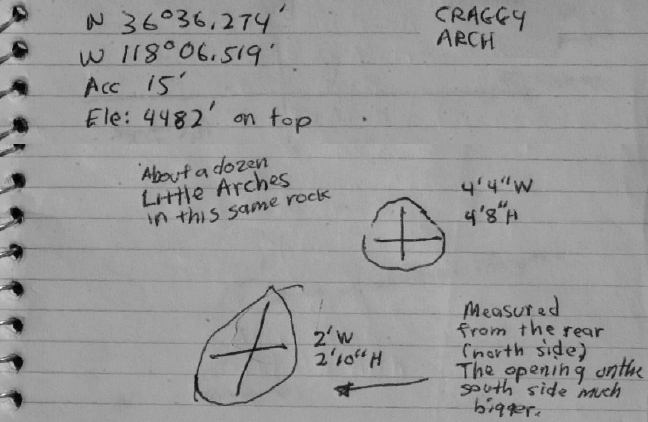 N 36°36.274'
W 118°06.519'
Acc 15'
Ele: 4482' on top
CRAGGY
ARCH
About a dozen
Little Arches
in this same rock
4'4"W
4'8"H
2'W
2'10"H
Measured
from the rear
(north side)
The opening on the
south side much
bigger.